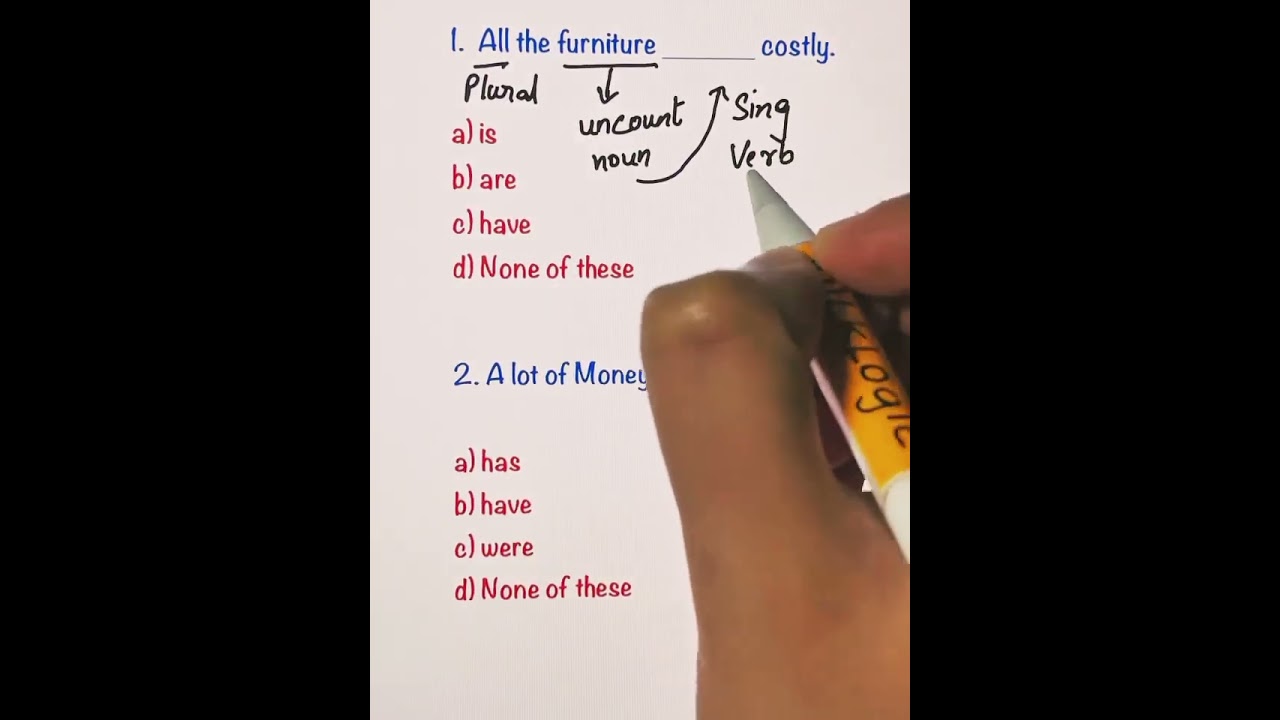 1. All the furniture ________ costly.
Plural
uncount
noun
Sing
Verb
a) is
b) are
c) have
d) None of these
2. A lot of Money
a) has
b) have
c) were
d) None of these